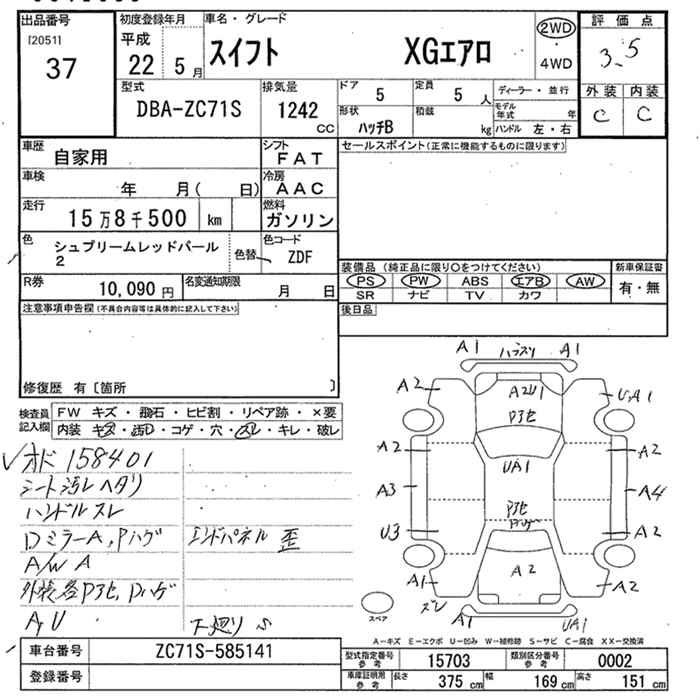 出品番号
[2051]
37
初度登録年月
平成
22 5 月
車名・グレード
スイフト XGエアロ
2WD
・
4WD
評価点
3.5
外装 内装
C C
型式
DBA-ZC71S
排気量
1242 cc
ドア 5
定員 5 人
ディーラー・並行
形状 ハッチB
積載 kg
モデル年式 年
ハンドル 左・右
車歴 自家用
シフト FAT
セールスポイント(正常に機能するものに限ります)
車検 年 月( 日)
冷房 AAC
走行 15万8千500 km
燃料 ガソリン
色 シュプリームレッドパール
2
色替
色コード ZDF
装備品(純正品に限り○をつけてください)
PS PW ABS エアB AW
SR ナビ TV カワ
新車保証書
有・無
R券 10,090 円
名変通知期限 月 日
注意事項申告欄(不具合内容等は具体的に記入して下さい)
後日品
修復歴 有〔箇所 〕
検査員記入欄
FW キズ・飛石・ヒビ割・リペア跡・×要
内装 キズ・汚れ・コゲ・穴・スレ・キレ・破レ
オド 158401
シート汚レ ヘタリ
ハンドルスレ
DミラーA,Pハゲ エンドパネル歪
A/W A
外装各P3セ,Pハゲ
A,U 下廻り S
A1 ハラスリ A1
A2 A2U1 U,A1
P3セ
A2 UA1 A2
A3 P3セ A4
U3 Pハゲ A2
A1 A2 A2
ズレ A1 UA1
スペア
A-キズ E-エクボ U-凹み W-補修跡 S-サビ C-腐食 XX-交換済
車台番号 ZC71S-585141
登録番号
型式指定番号参考 15703
類別区分番号参考 0002
車庫証明用参考 長さ 375 cm 幅 169 cm 高さ 151 cm